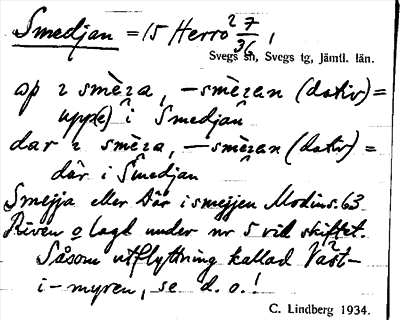 Smedjan = 15 Herrö 2 7/36 !
Svegs sn, Svegs tg, Jämtl. län.
op ı smèɛa, –smèɛan (dativ) =
uppe) i Smedjan
dar ı smèɛa, –smèɛan (dativ) =
där i Smedjan
Smejja eller där i smejjen Modin s. 63
Riven o lagd under nr 5 vid skiftet.
Såsom utflyttning kallad Väst-
i-myren, se d. o.!
C. Lindberg 1934.